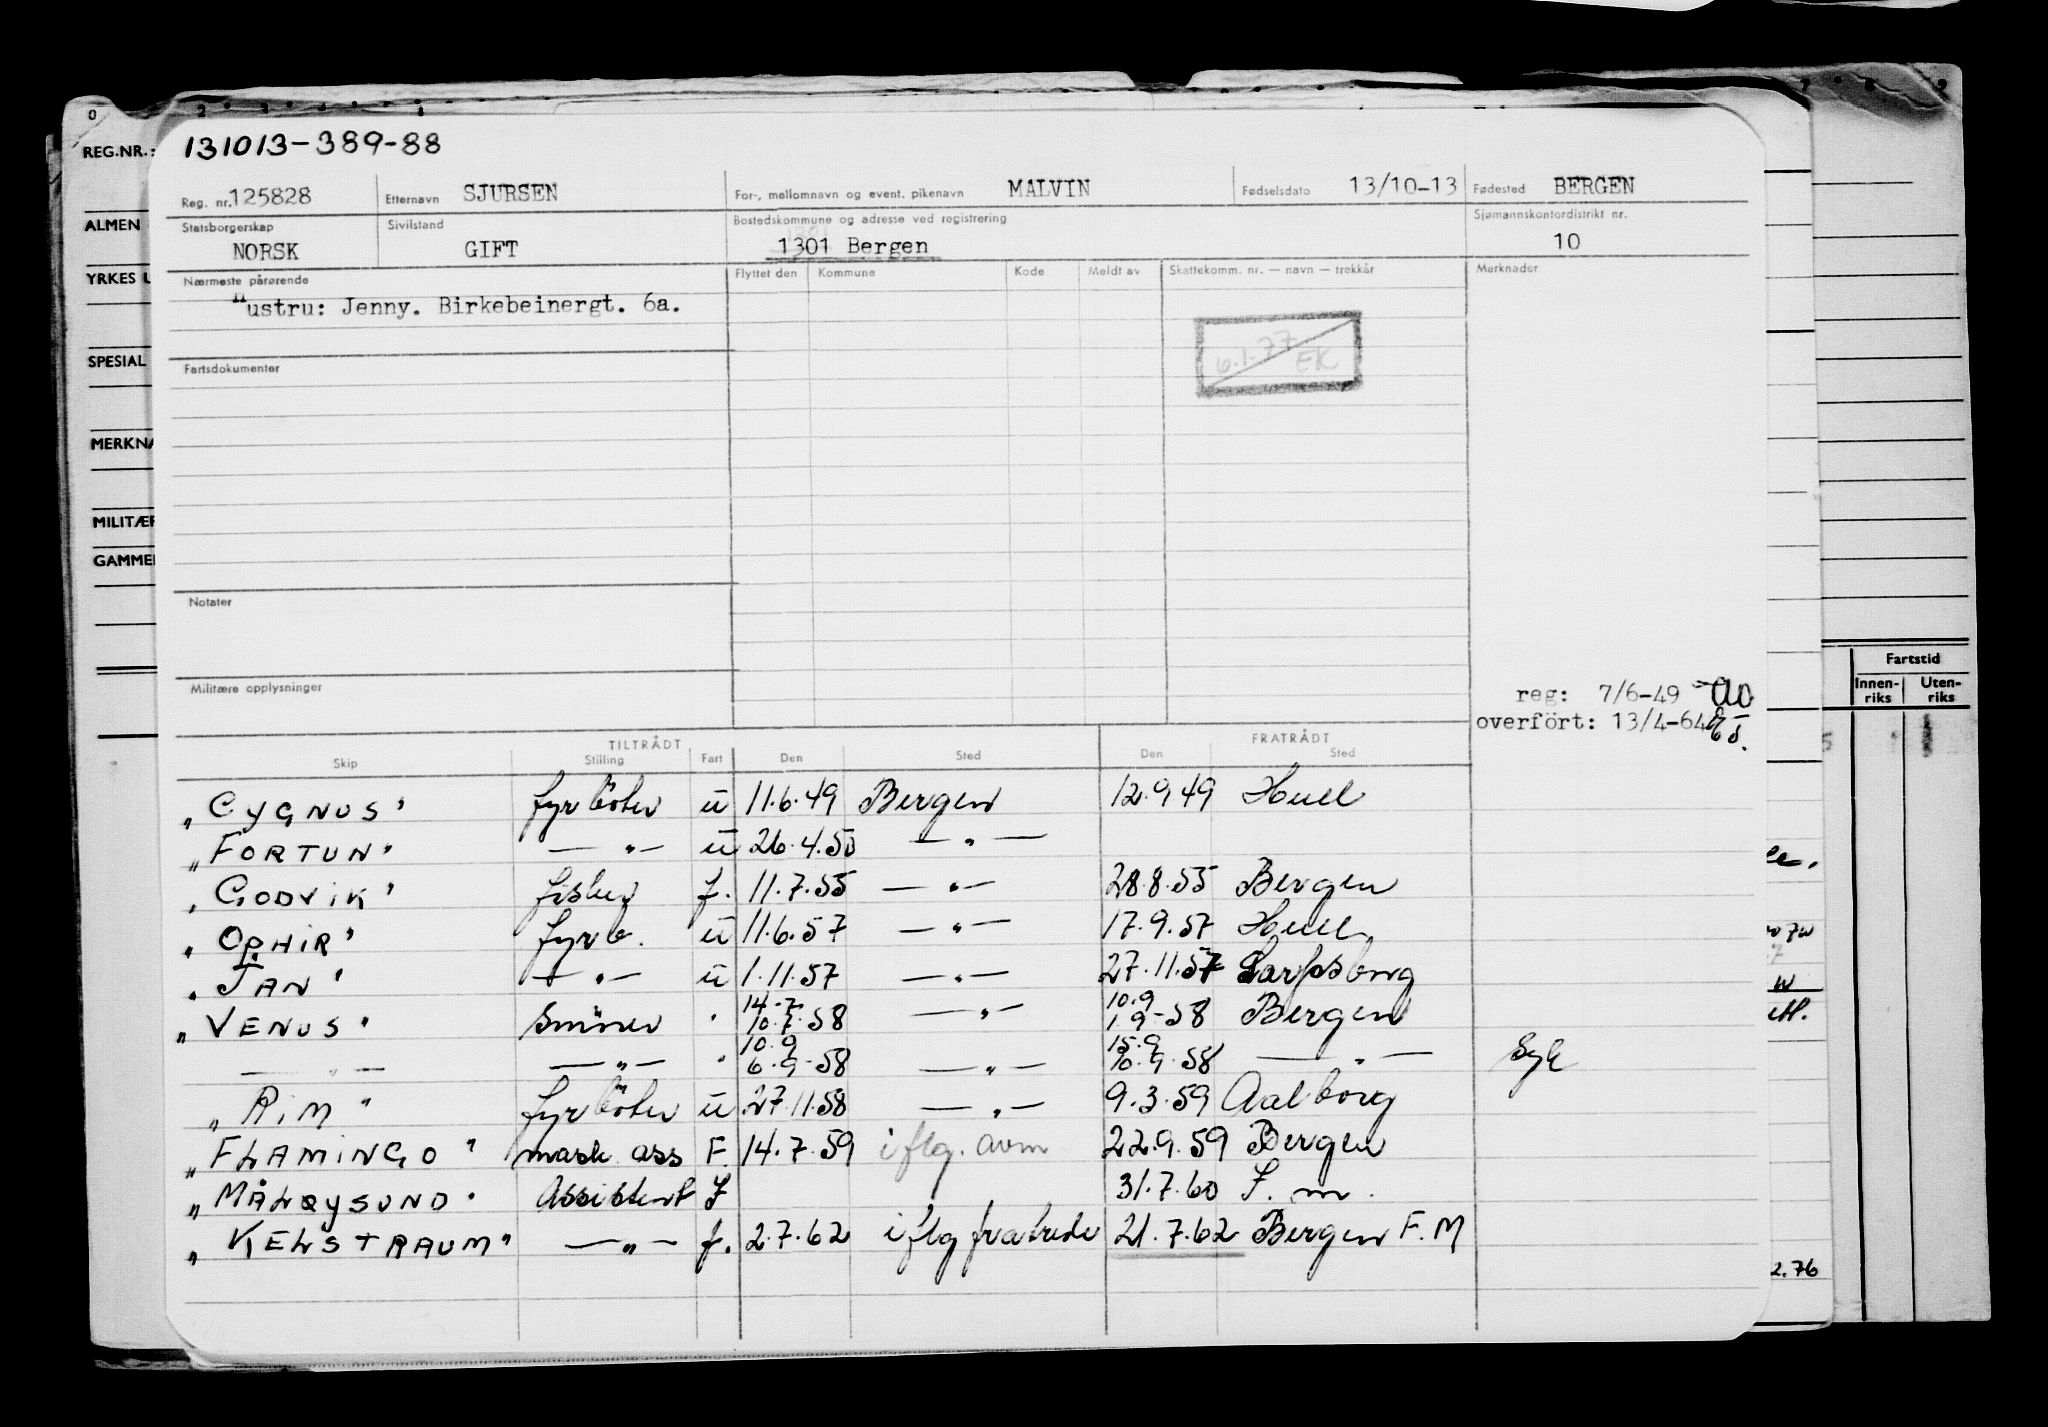 131013-389-88
REG.NR.:
Reg. nr. 125828 Etternavn SJURSEN For-, mellomnavn og event. pikenavn MALVIN Fødselsdato 13/10-13 Fødested BERGEN
ALMEN
Statsborgerskap NORSK Sivilstand GIFT Bostedskommune og adresse ved registrering 1301 Bergen Sjømannskontordistrikt nr. 10
YRKES
Nærmeste pårørende Flyttet den Kommune Kode Meldt av Skattekomm. nr. — navn — trekkår Merknader
Hustru: Jenny. Birkebeinergt. 6a.
6.1.77 EK
SPESIAL
Fartsdokumenter
MERKNA
MILITÆR
GAMMEL
Notater
Fartstid
Innen-riks Uten-riks
Militære opplysninger
reg: 7/6-49
overfört: 13/4-64
TILTRÅDT FRATRÅDT
Skip Stilling Fart Den Sted Den Sted
"CYGNUS" fyrböter u 11.6.49 Bergen 12.9.49 Hull
"FORTUN" —"— u 26.4.50 —"—
"GODVIK" fisker f. 11.7.55 —"— 28.8.55 Bergen
"OPHIR" fyrb. u 11.6.57 —"— 17.9.57 Hull
"JAN" —"— u 1.11.57 —"— 27.11.57 Sarpsborg
"VENUS" Smörer " 14.7 10.7.58 —"— 10.9 1.9-58 Bergen
—"— —"— " 10.9 6.9-58 —"— 15.9 10.9.58 —"— Syk
"RIM" fyrböter u 27.11.58 —"— 9.3.59 Aalborg
"FLAMINGO" mask. ass F. 14.7.59 iflg. avm 22.9.59 Bergen
"MÅLØYSUND" Assistent f 31.7.60 F. m.
"KELSTRAUM" —"— f. 2.7.62 iflg fratrede 21.7.62 Bergen F.M
2.76